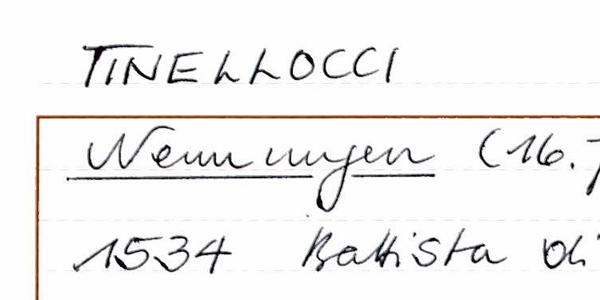 TINELLOCCI
Nennungen (16.
1534 Battista di